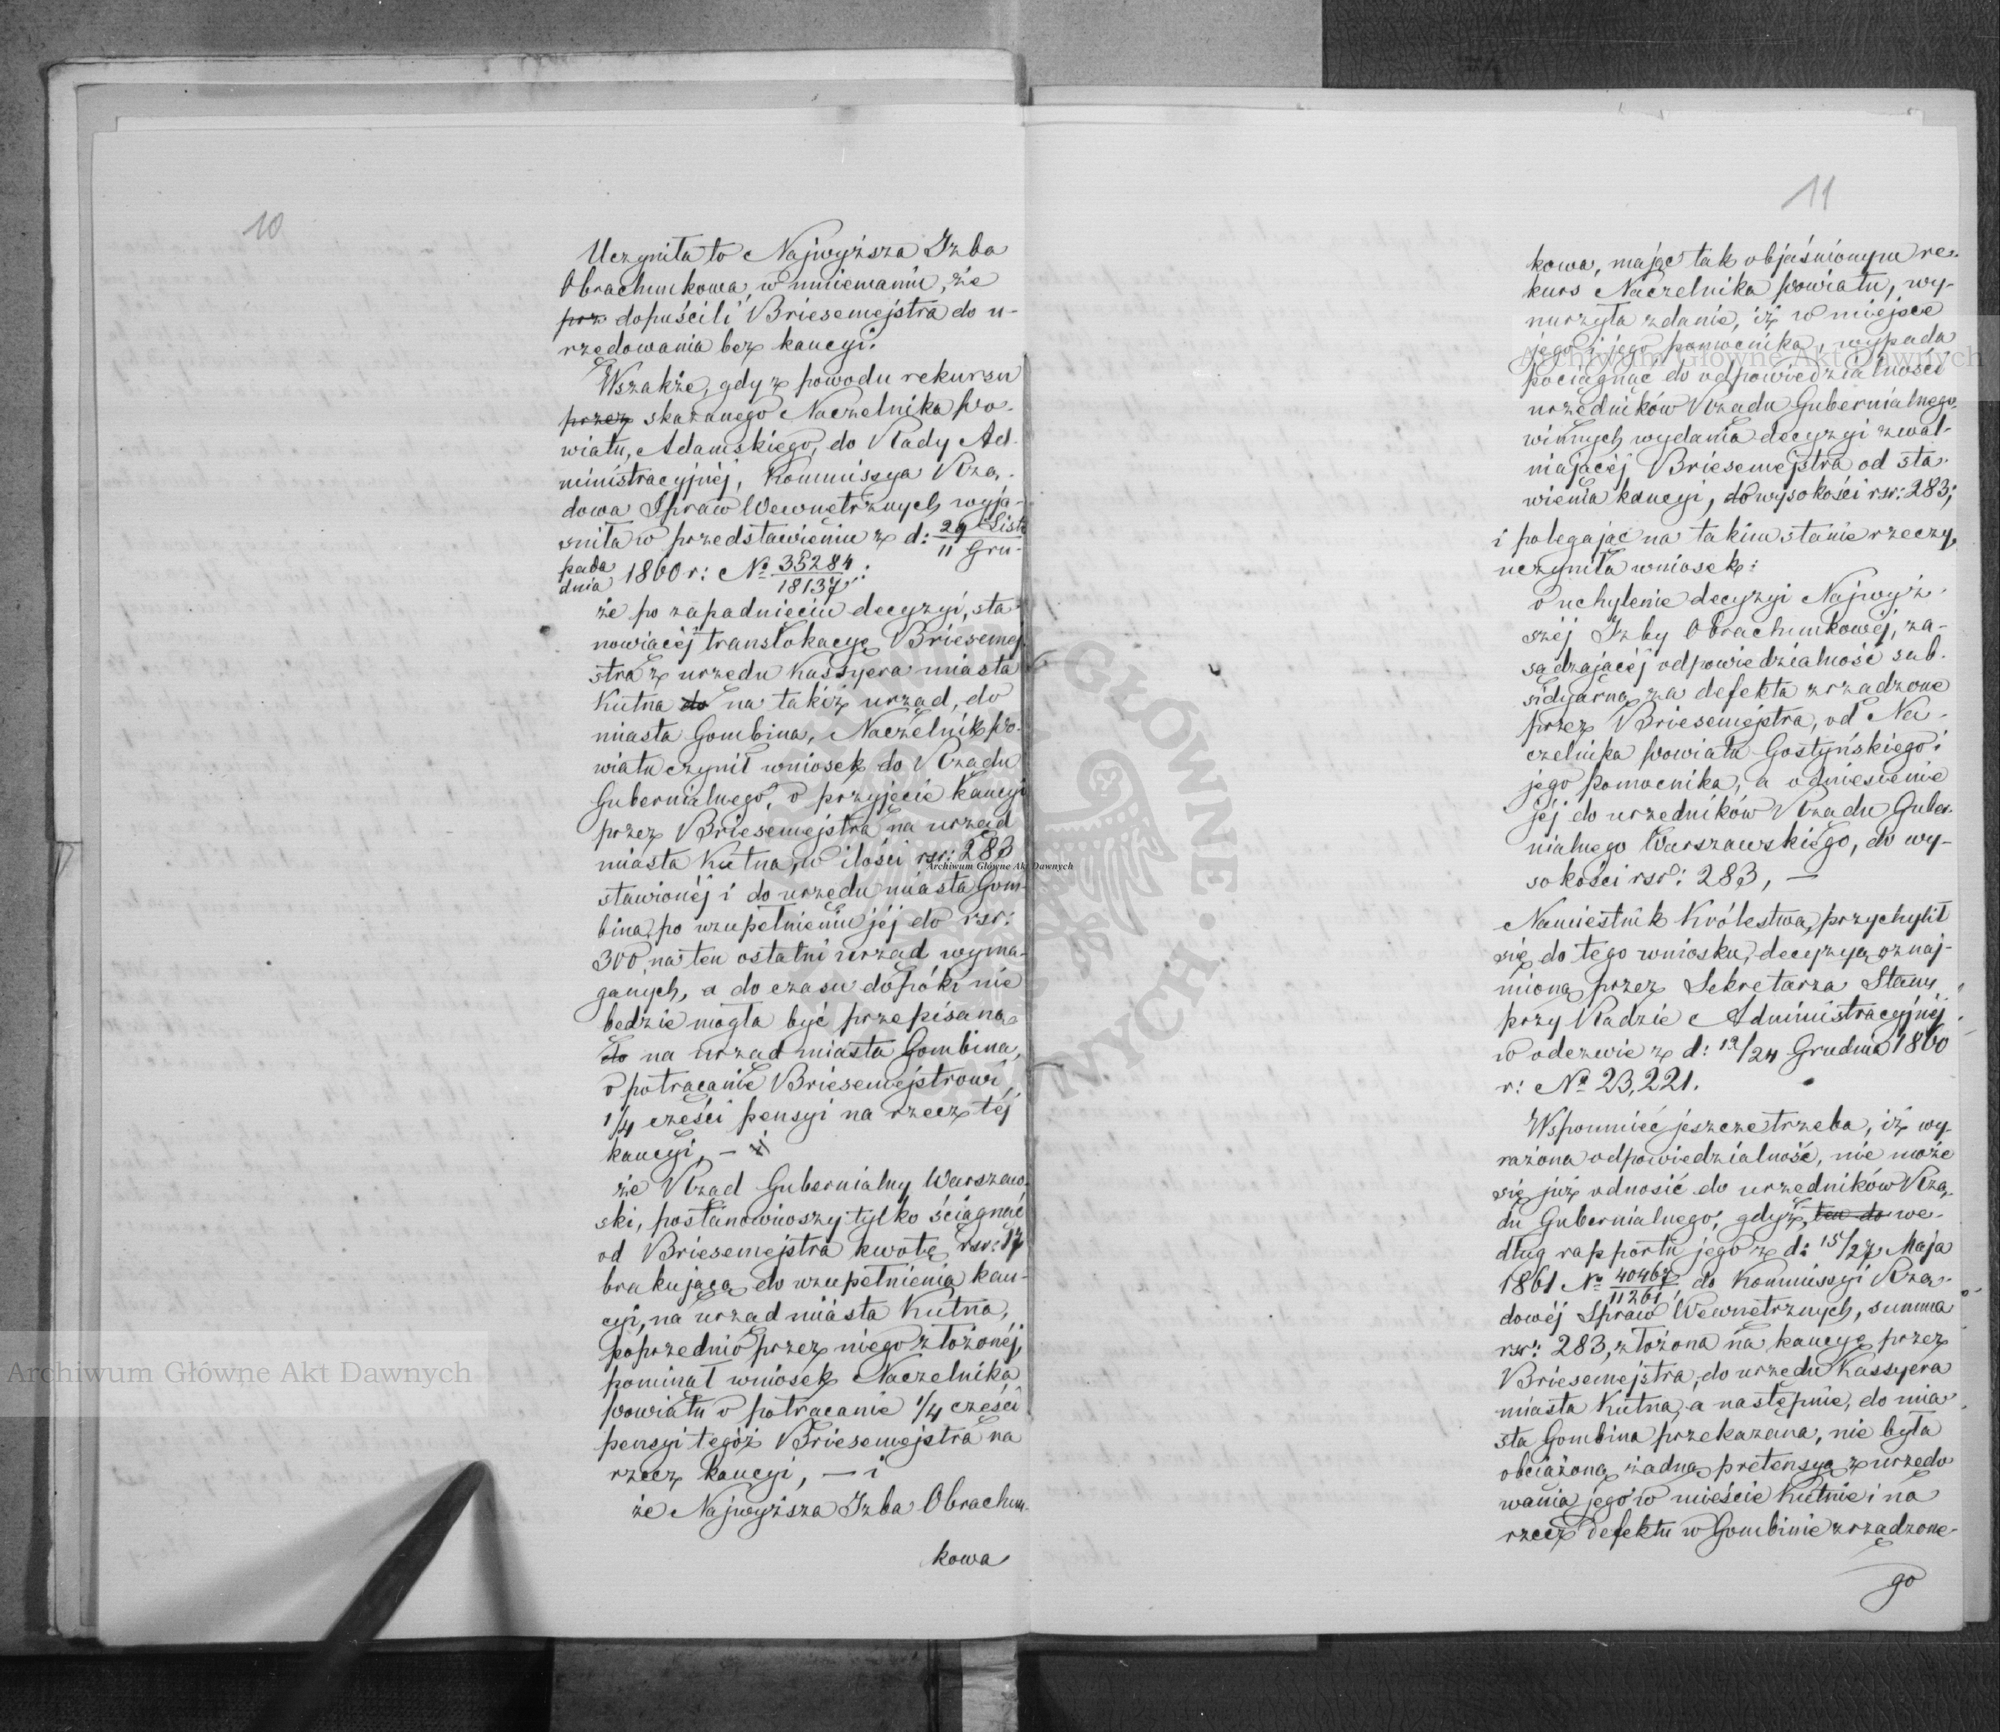 10
Uczyniła to Najwyższa Izba
Obrachunkowa, w mniemaniu, że
prz dopuścili Briesemejstra do u-
rzędowania bez kaucyi.
Wszakże, gdy z powodu rekursu
przez skazanego Naczelnika Po-
wiatu, Adamskiego, do Rady Ad-
ministracyjnéj, Kommissya Rzą-
dowa Spraw Wewnętrznych wyja-
śniła w przedstawieniu z d: 29 Listo
pada / 11 Gru-
dnia 1860 r: № 35284/18137:
że po zapadnięciu decyzyi, sta-
nowiącéj translokacyę Briesemej
stra z urzędu Kassyera miasta
Kutna do na takiż urząd, do
miasta Gombina, Naczelnik Po-
wiatu czynił wniosek do Rządu
Gubernialnego, o przyjęcie kaucyi
przez Briesemejstra na urząd
miasta Kutna, w ilości rsr: 283
stawionéj i do urzędu miasta Gom-
bina, po uzupełnieniu jéj do rsr:
300, na ten ostatni urząd wyma-
ganych, a do czasu dopóki nie
będzie mogła być przepisaną
do na urząd miasta Gombina,
o potrącanie Briesemejstrowi,
1/4 części pensyi na rzecz téj
kaucyi, —
że Rząd Gubernialny Warszaw-
ski, postanowiwszy tylko ściągnąć
od Briesemejstra kwotę rsr: 17
brakującą do uzupełnienia kau-
cyi, na urząd miasta Kutna,
poprzednio przez niego złożonéj,
pominął wniosek Naczelnika
Powiatu o potrącanie 1/4 części
pensyi tegóż Briesemejstra na
rzecz kaucyi, — i
że Najwyższa Izba Obrachun-
kowa
11
kowa, mając tak objaśnionym re-
kurs Naczelnika Powiatu, wy-
nurzyła zdanie, iż w miejsce
jego i jego pomocnika, wypada
pociągnąć do odpowiedzialności
urzędników Rządu Gubernialnego,
winnych wydania decyzyi zwal-
niającéj Briesemejstra od sta-
wienia kaucyi, do wysokości rsr: 283;
i polegając na takim stanie rzeczy,
uczyniła wniosek:
o uchylenie decyzyi Najwyż-
széj Izby Obrachunkowéj, za-
sądzającéj odpowiedzialność sub-
sidyarną za defekta zrządzone
przez Briesemejstra, od Na-
czelnika Powiatu Gostyńskiego i
jego Pomocnika, a odniesienie
jéj do urzędników Rządu Guber-
nialnego Warszawskiego, do wy-
sokości rsr: 283, —
Namiestnik Królestwa, przychylił
się do tego wniosku, decyzyą oznaj-
mioną przez Sekretarza Stanu
przy Radzie Administracyjnéj
w odezwie z d: 12/24 Grudnia 1860
r: № 23,221.
Wspomnieć jeszcze trzeba, iż wy-
rażona odpowiedzialność, nie może
się już odnosić do urzędników Rzą-
du Gubernialnego, gdyż ten do we-
dług rapportu jego z d: 15/27 Maja
1861 № 40467/11261, do Kommissyi Rzą-
dowéj Spraw Wewnętrznych, summa
rsr: 283, złożona na kaucyę przez
Briesemejstra, do urzędu Kassyera
miasta Kutna, a następnie, do mia-
sta Gombina przekazana, nie była
obciążoną żadną pretensyą z urzędo
wania jego w mieście Kutnie i na
rzecz defektu w Gombinie zrządzone-
go
Archiwum Główne Akt Dawnych
Archiwum Główne Akt Dawnych
Archiwum Główne Akt Dawnych